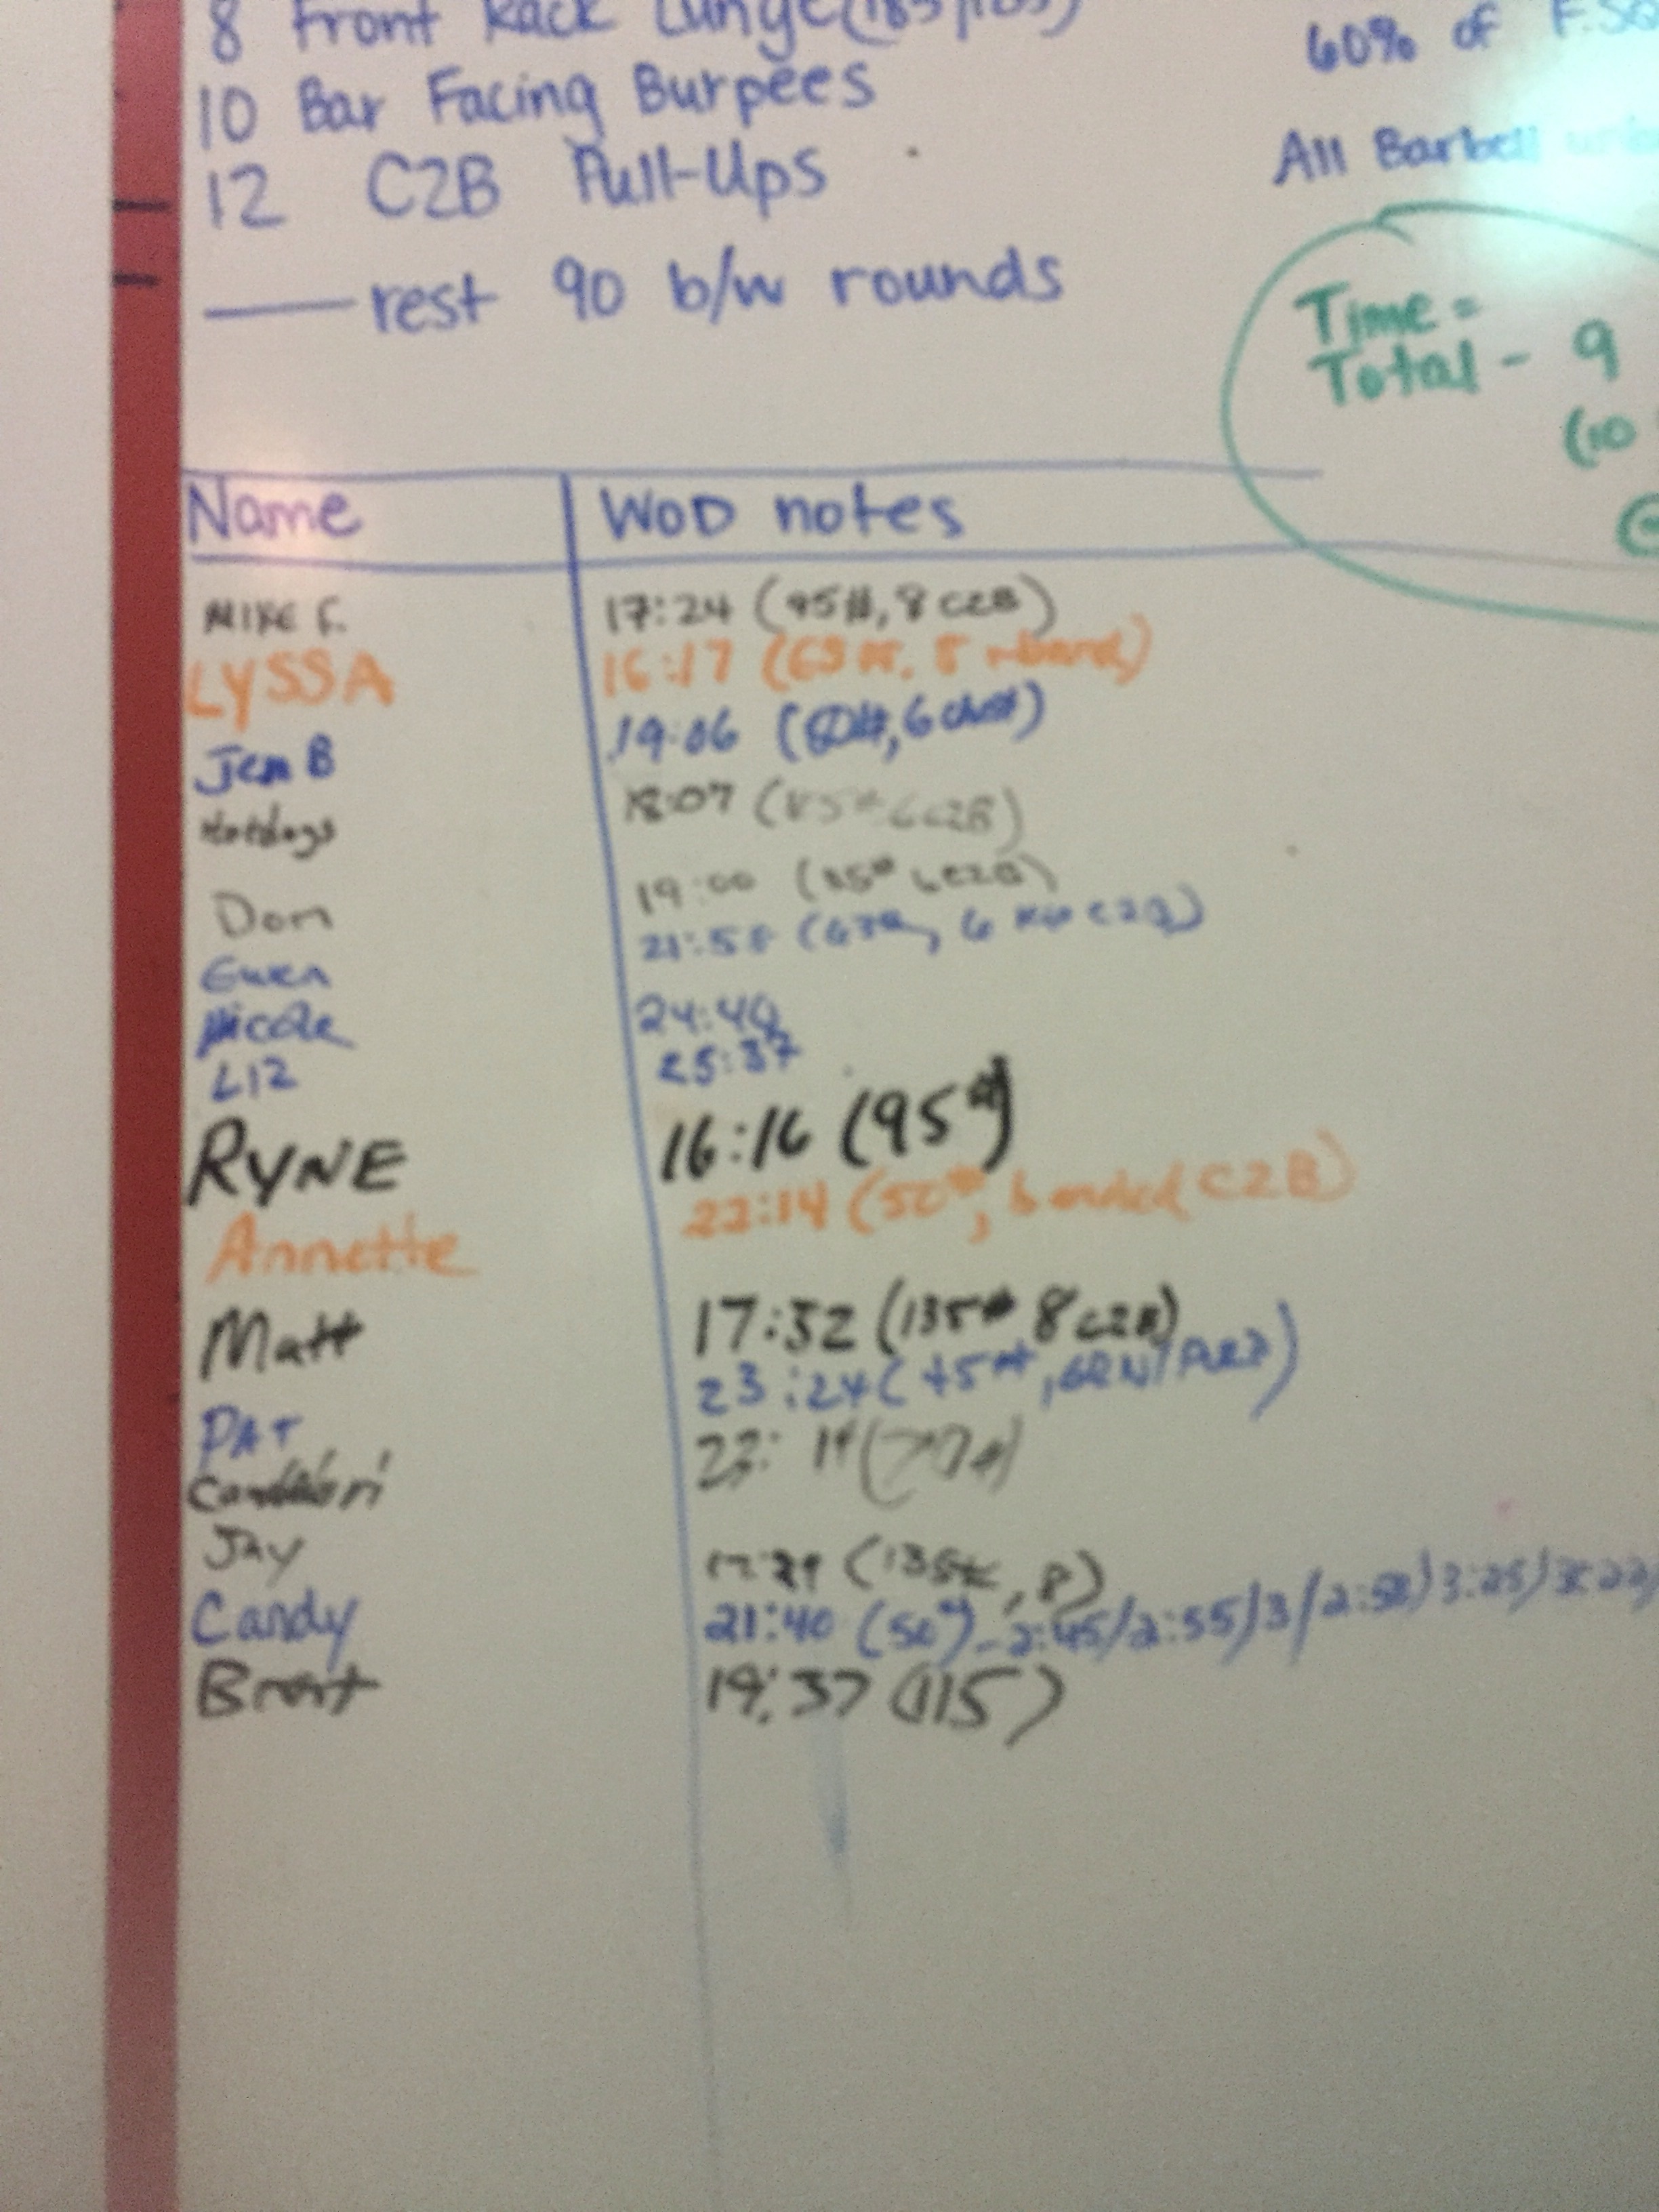 8 Front Rack Lunge
10 Bar Facing Burpees
12 C2B Pull-Ups
rest 90 b/w rounds
60% of F.SQ
All Barbell
Time =
Total - 9
(10
Name WOD notes
MIKE F. 17:24 (95#, 8 C2B)
LYSSA 16:17 (63#, 8
Jen B 19:06
Hotdogs 18:07 (85# 6 C2B)
Dom 19:00 (85# 6 C2B)
Gwen (63#, 6 Kip C2B)
Nicole 24:40
LIZ 25:37
RYNE 16:16 (95#)
Annette 22:14 (50#, banded C2B)
Matt 17:32 (135# 8 C2B)
PAT 23:24
Jay (135#, 8)
Candy 21:40 (50#) - 2:45/2:55/3/2:58/3:25/
Brent 19:37 (115)